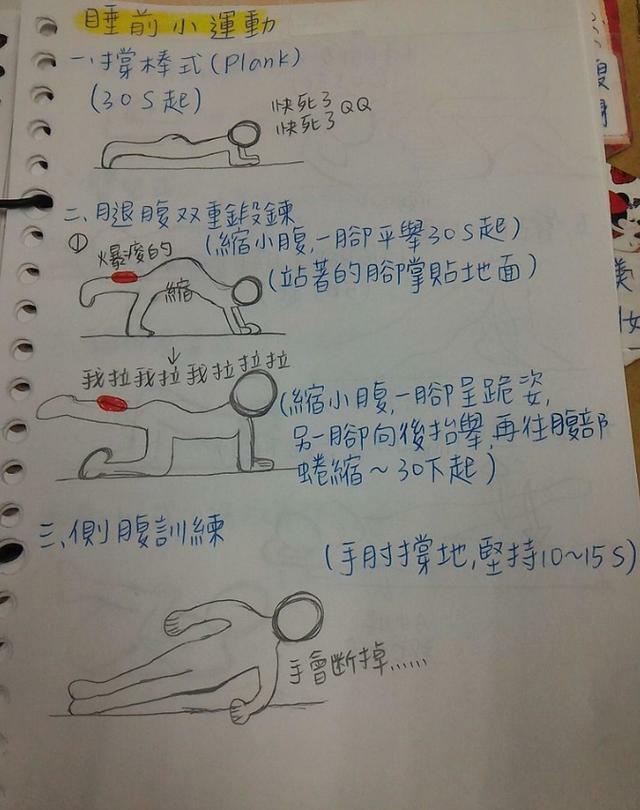 睡前小運動
一、撐棒式(Plank)
(30S起)
快死了QQ
快死了
二、腿腹双重鍛鍊
① 爆痠的
(縮小腹,一腳平舉30S起)
(站著的腳掌貼地面)
縮
我拉我拉我拉拉拉
(縮小腹,一腳呈跪姿,
另一腳向後抬舉,再往腹部
蜷縮～30下起)
三、側腹訓練
(手肘撐地,堅持10~15S)
手會断掉......
美